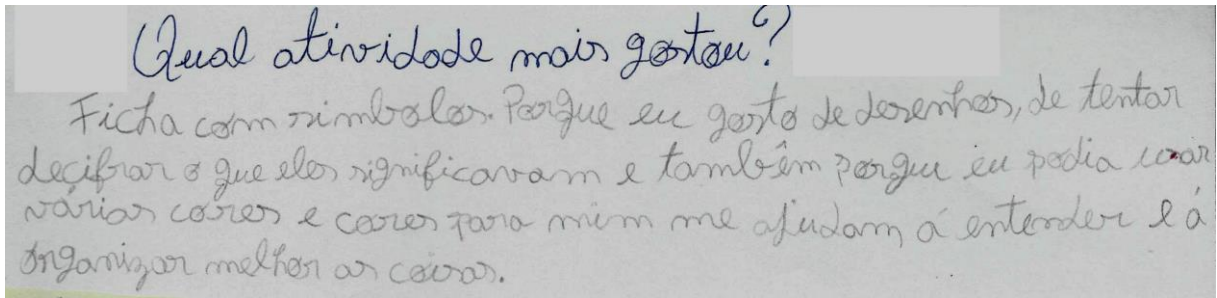 Qual atividade mais gostou?
Ficha com simbolos. Porque eu gosto de desenhos, de tentar
decifrar o que eles significavam e também porque eu podia usar
várias cores e cores para mim me ajudam á entender e á
organizar melhor as coisas.